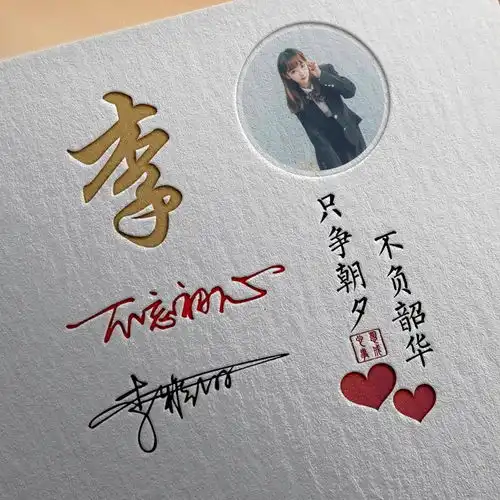 李
不忘初心
只争朝夕
不负韶华